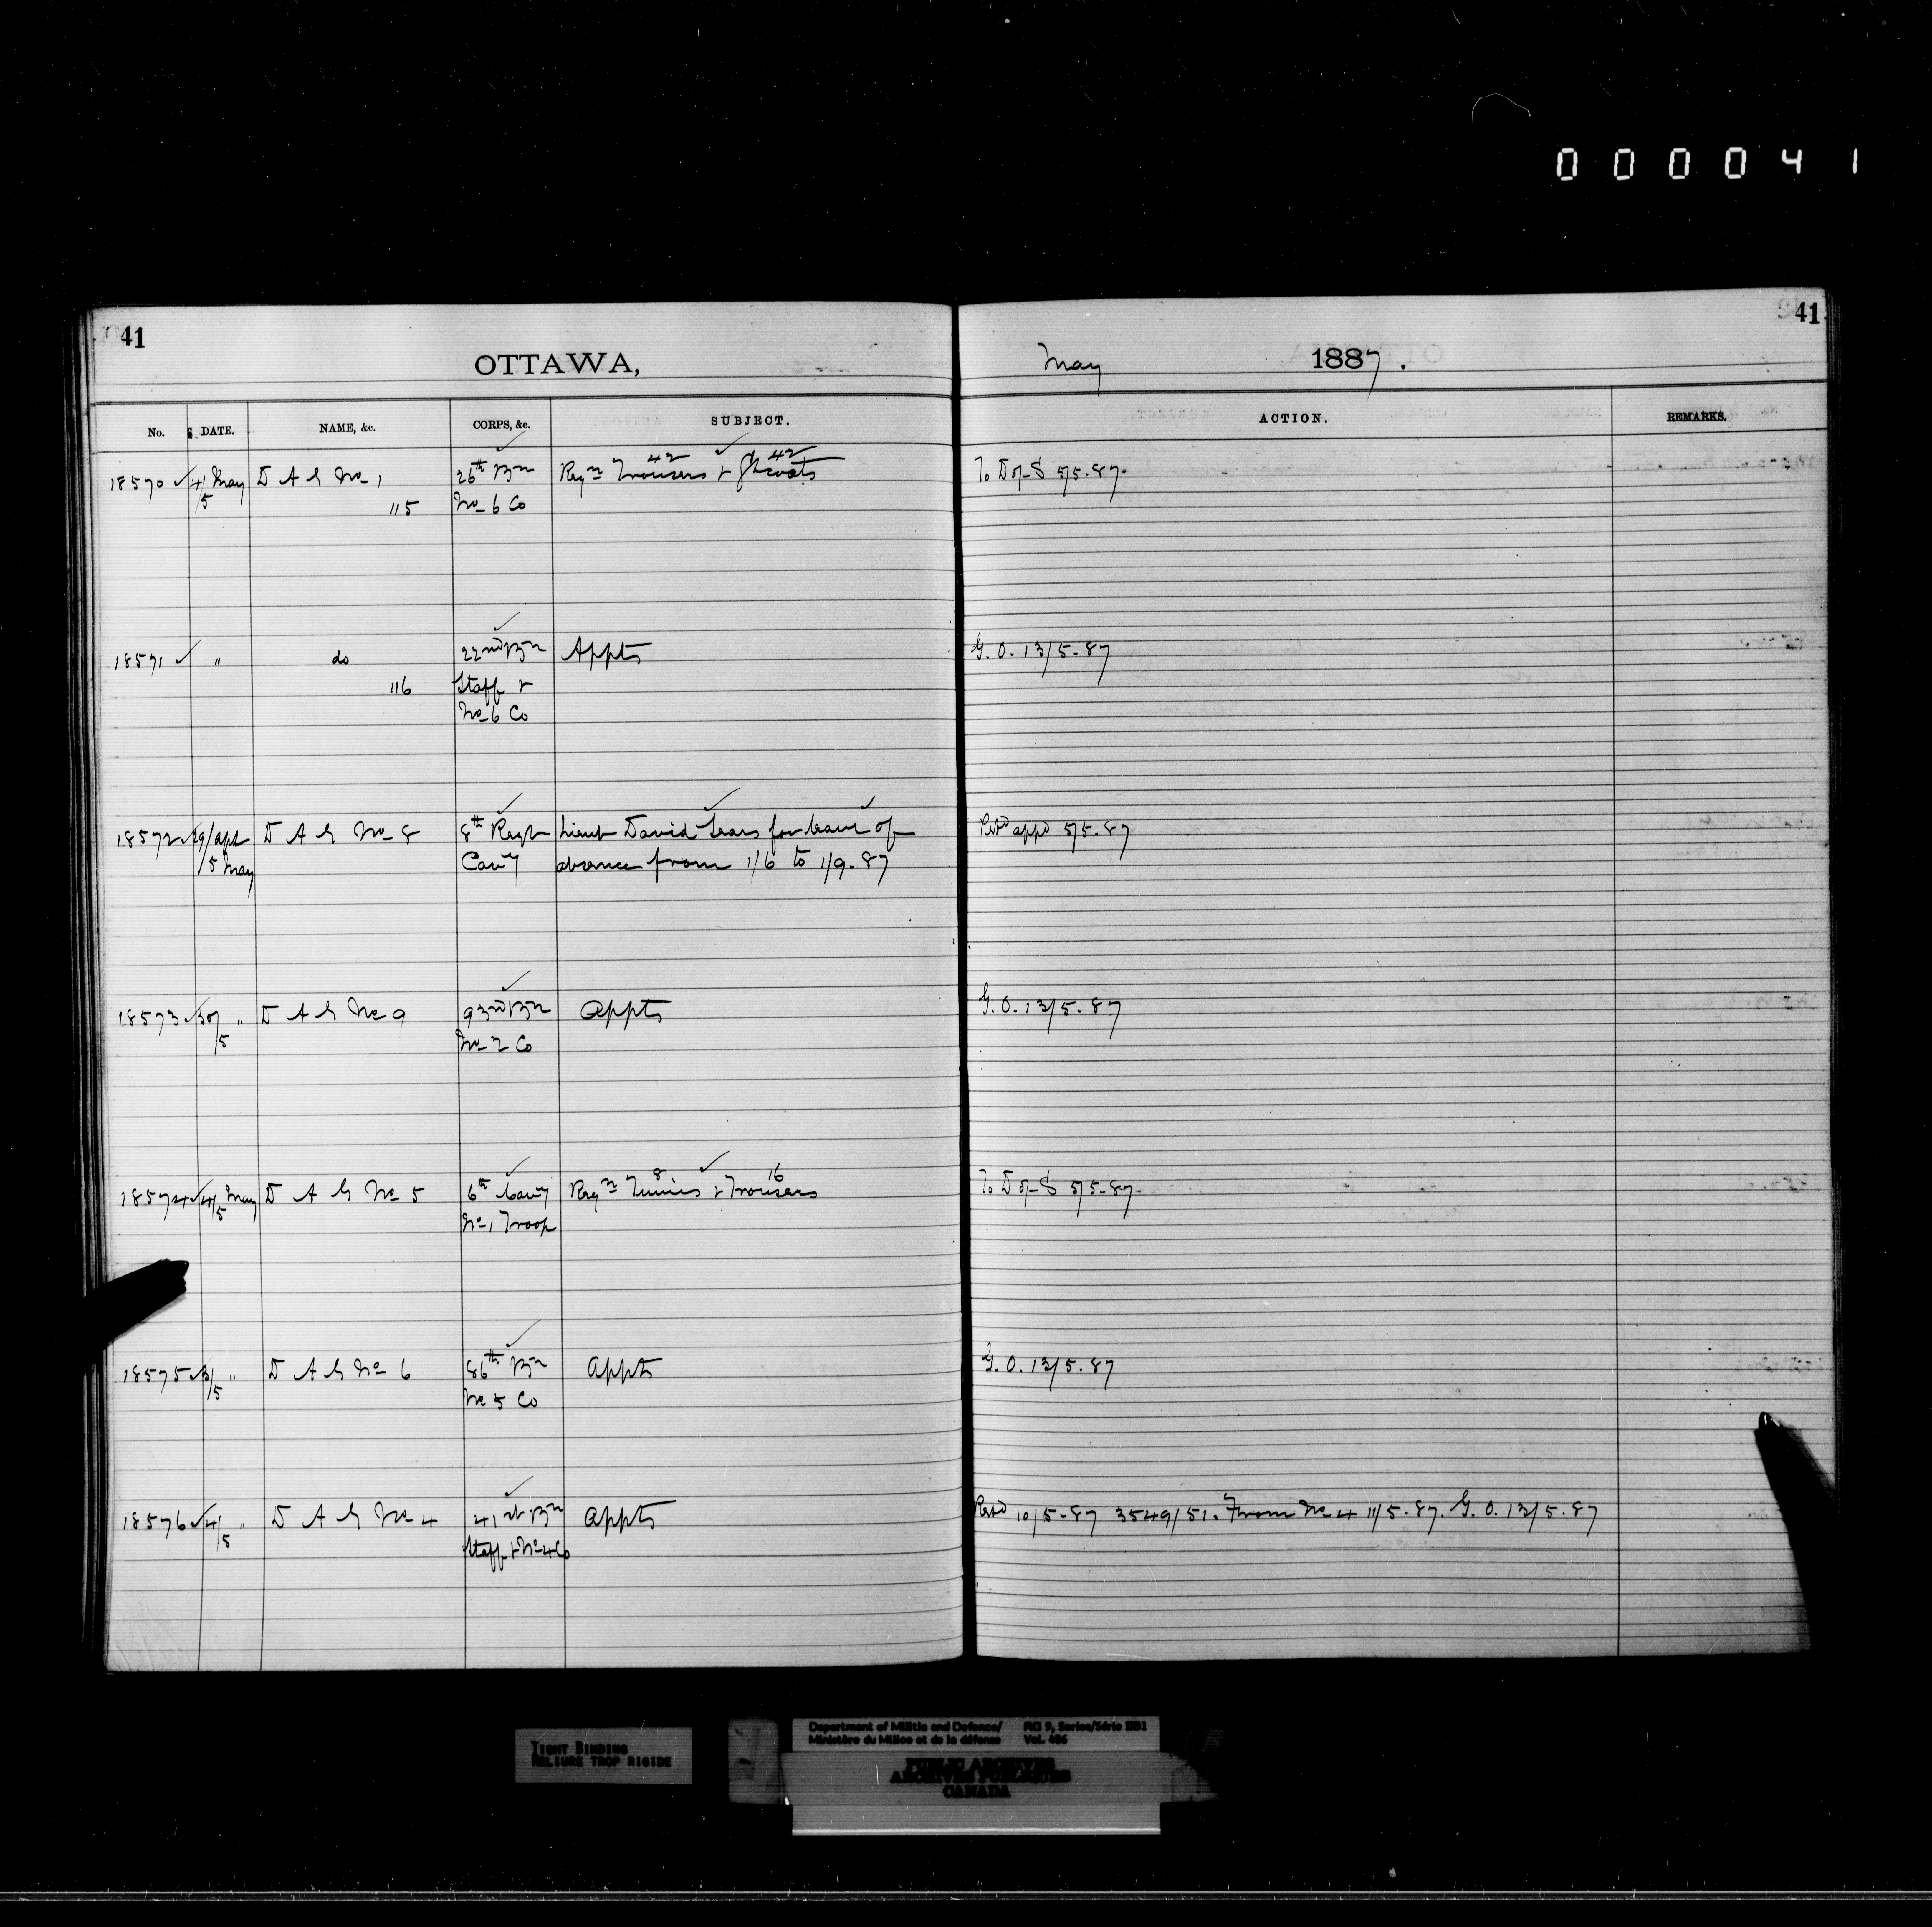 000041
41
41
OTTAWA,
May 1887.
No. DATE. NAME, &c. CORPS, &c. SUBJECT. ACTION. REMARKS.
18570 4/ May D A G No 1 26th Bn Reqn 42 Trousers & 42 Gtcoats To D of S 5/5.87.
/5 115 No 6 Co
18571 " do 22nd Bn Appts G. O. 13/5.87
116 Staff &
No 6 Co
18572 29/Apl D A G No 8 8th Regt Lieut David for leave of Retd appd 5/5.87
/5 May Cavy absence from 1/6 to 1/9.87
18573 30/ " D A G No 9 93rd Bn Appts G. O. 13/5.87
/5 No 2 Co
18574 4/ May D A G No 5 6th Cavy Reqn 8 Tunics & 16 Trousers To D of S 5/5.87.
/5 No 1 Troop
18575 3/ " D A G No 6 86th Bn Appts G. O. 13/5.87
/5 No 5 Co
18576 4/ " D A G No 4 41st Bn Appts Retd 10/5.87 3549/51. From No 4 11/5.87. G. O. 13/5.87
/5 Staff & No 4 Co
TIGHT BINDING
RELIURE TROP RIGIDE
Department of Militia and Defence/ RG 9, Series/Série IIB1
Ministère du Milice et de la défense Vol. 406
PUBLIC ARCHIVES
ARCHIVES PUBLIQUES
CANADA